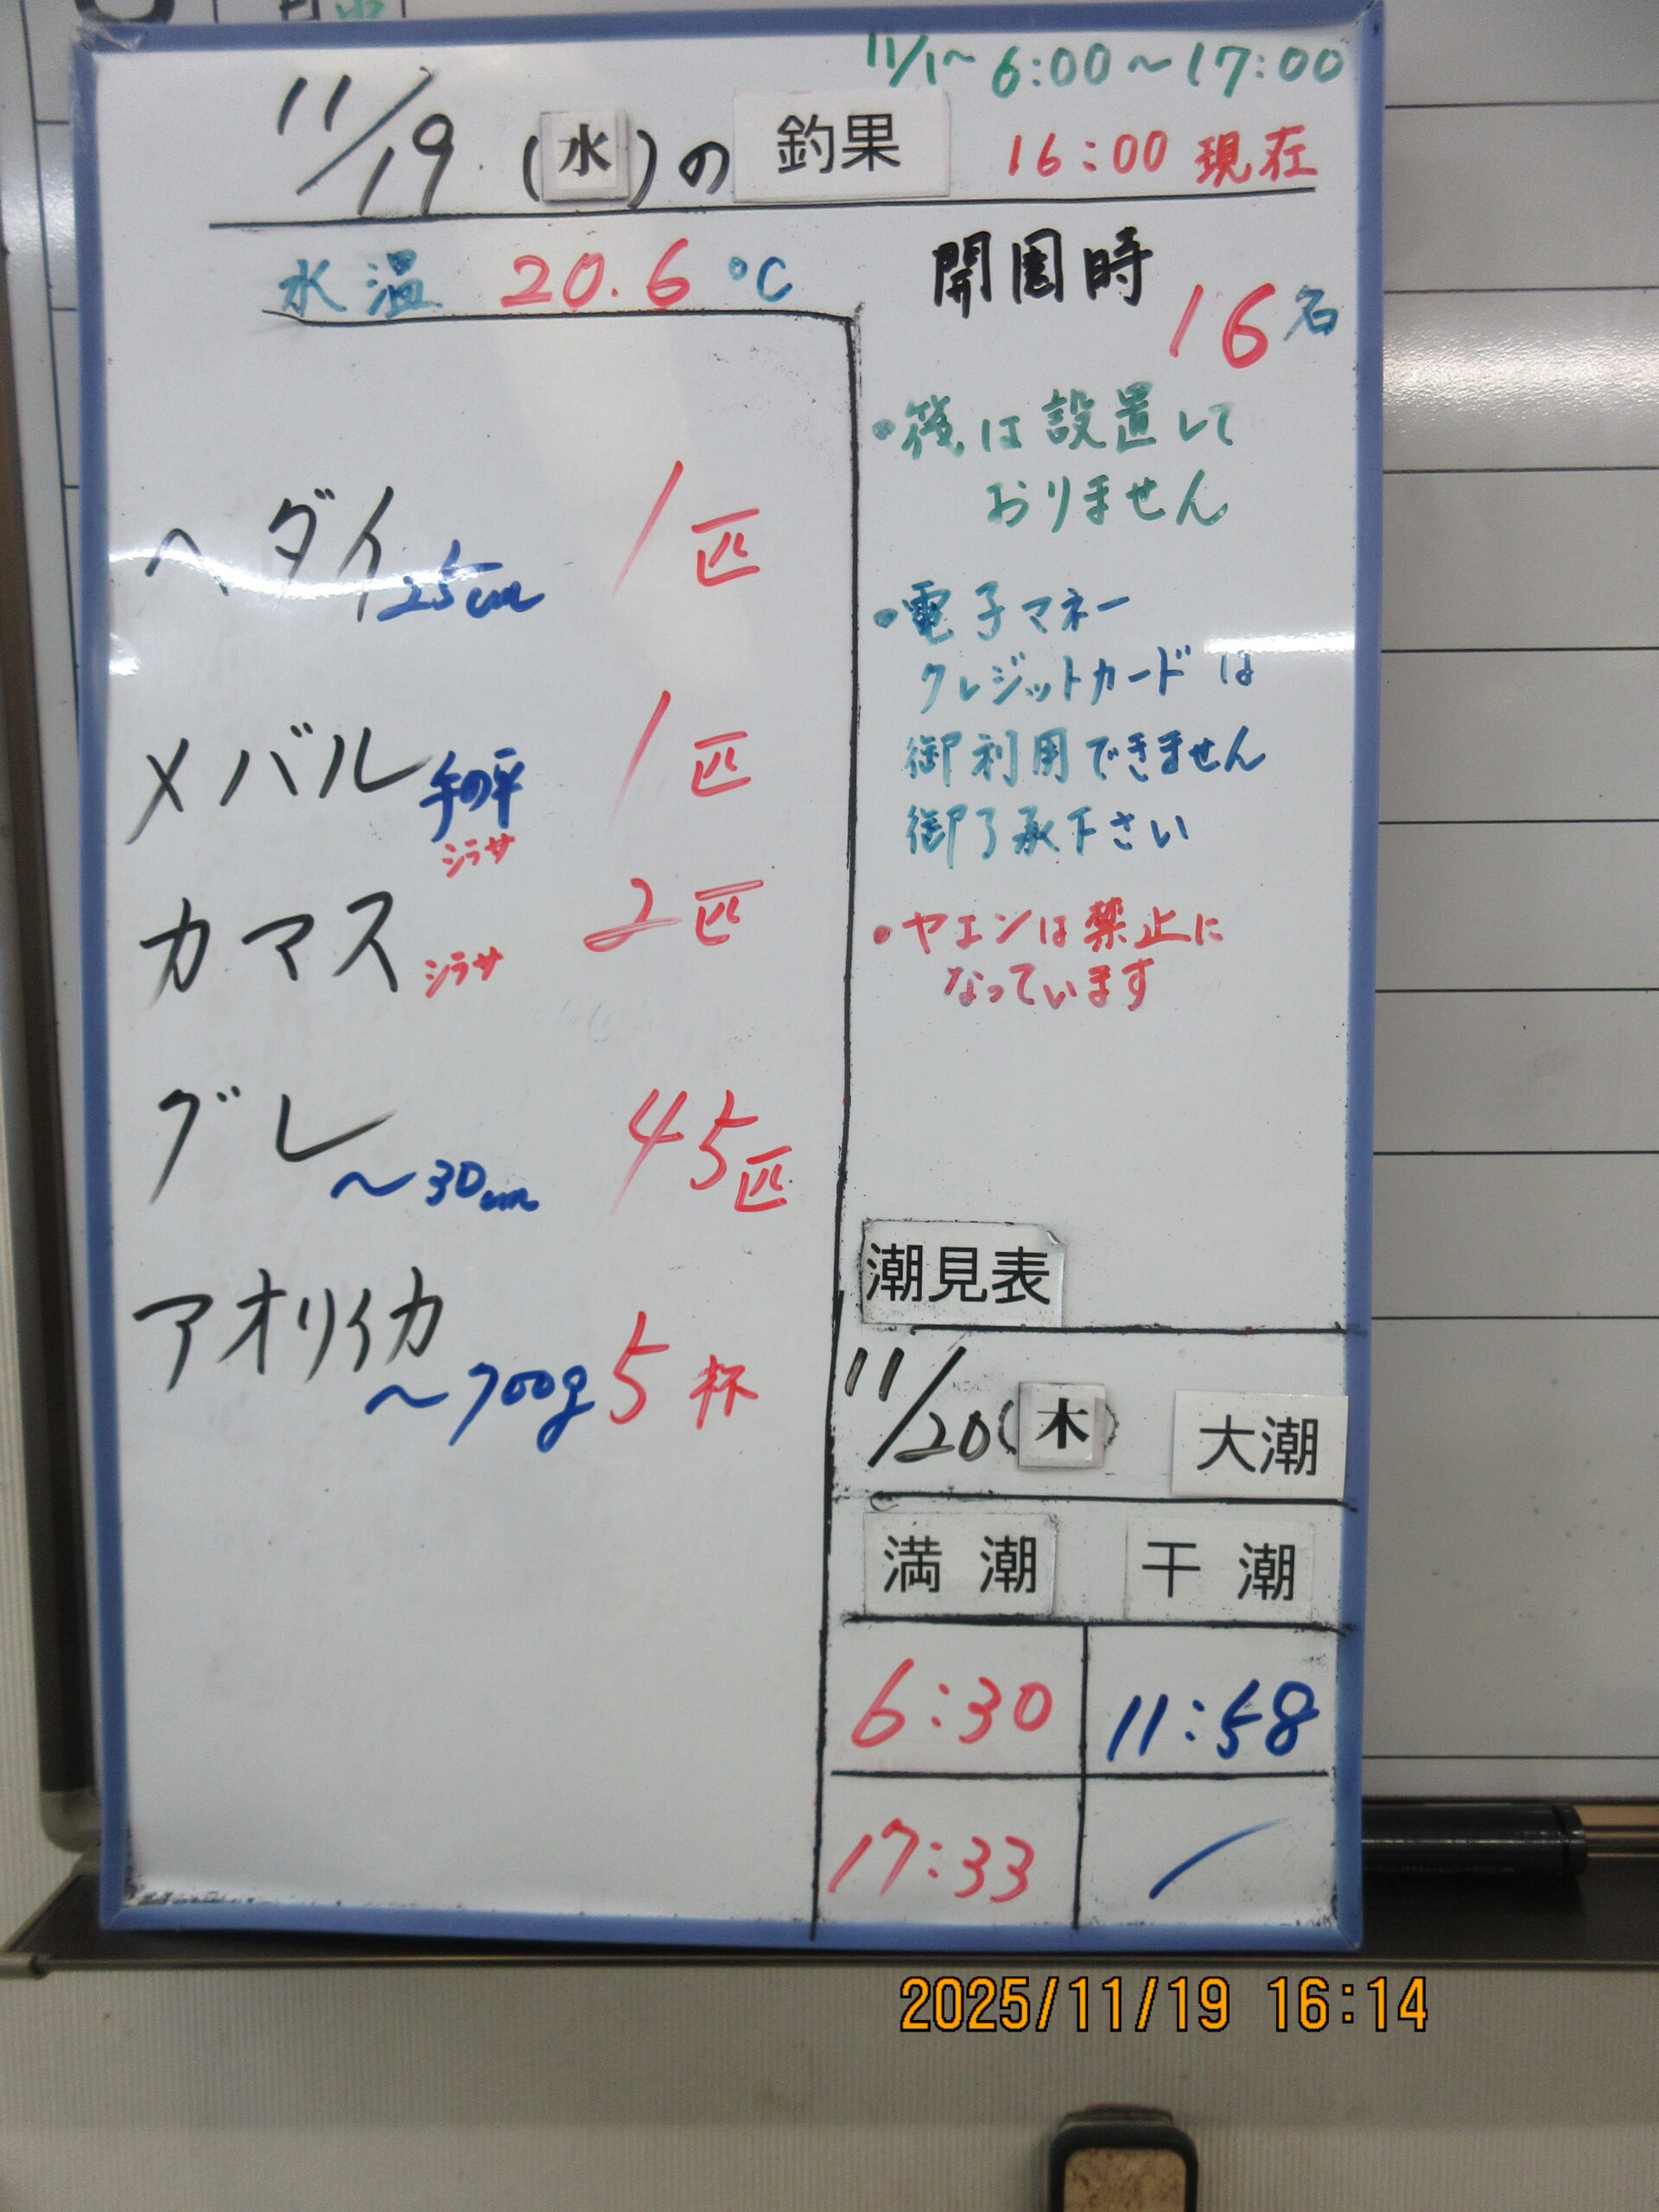 11/1～ 6:00～17:00
11/19 (水)の 釣果 16:00 現在
水温 20.6 ℃
開園時 16名
ヘダイ 25cm 1匹
メバル 手の平 1匹
シラサ
カマス シラサ 2匹
グレ ～30cm 45匹
アオリイカ ～700g 5杯
・筏は設置して
おりません
・電子マネー
クレジットカードは
御利用できません
御了承下さい
・ヤエンは禁止に
なっています
潮見表
11/20(木) 大潮
満潮 干潮
6:30 11:58
17:33 /
2025/11/19 16:14